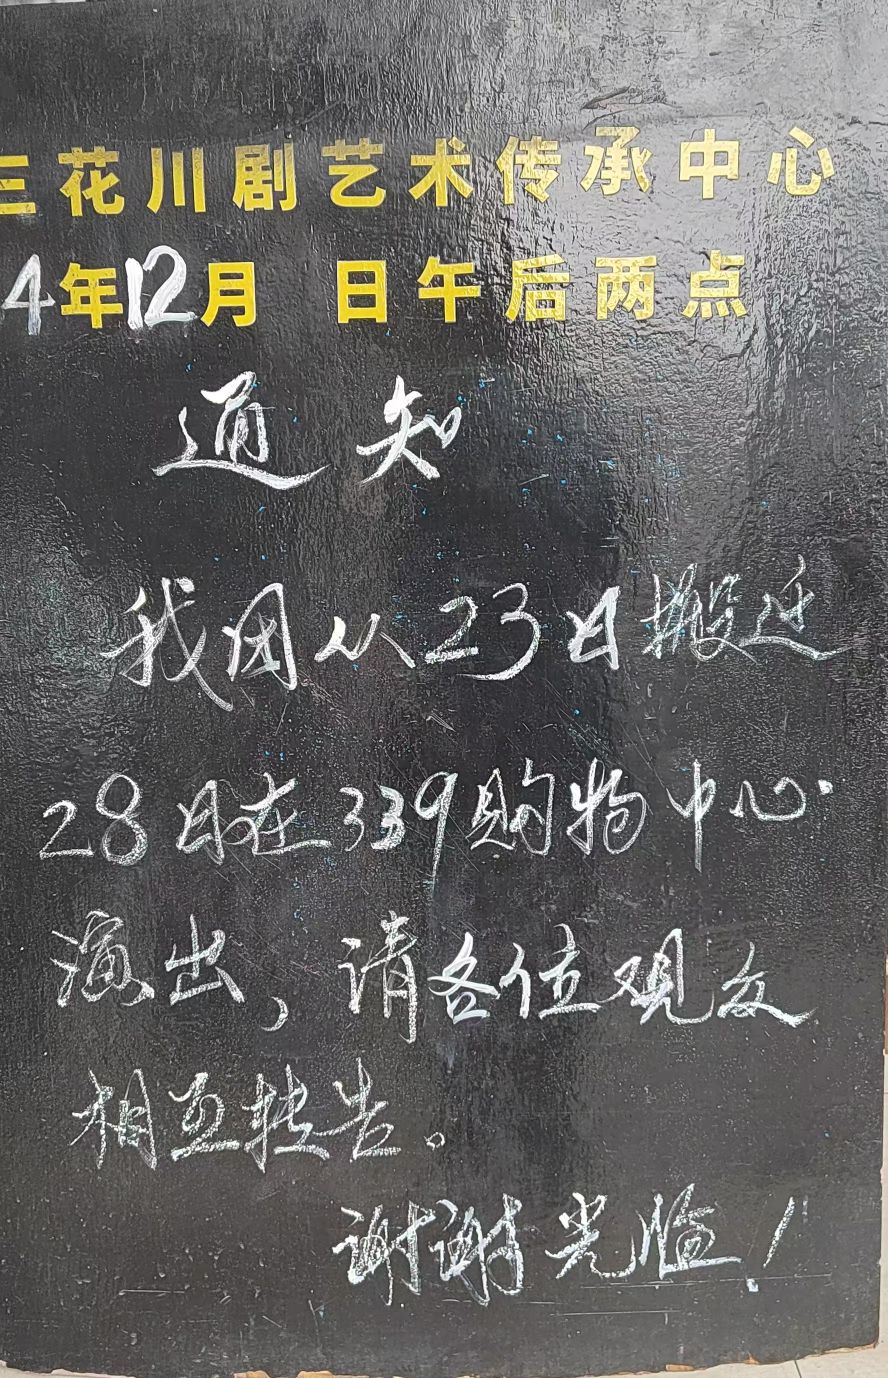 三花川剧艺术传承中心
4年12月 日午后两点
通知
我团从23日搬迁
28日在339购物中心
演出,请各位观众
相互转告。
谢谢光临!